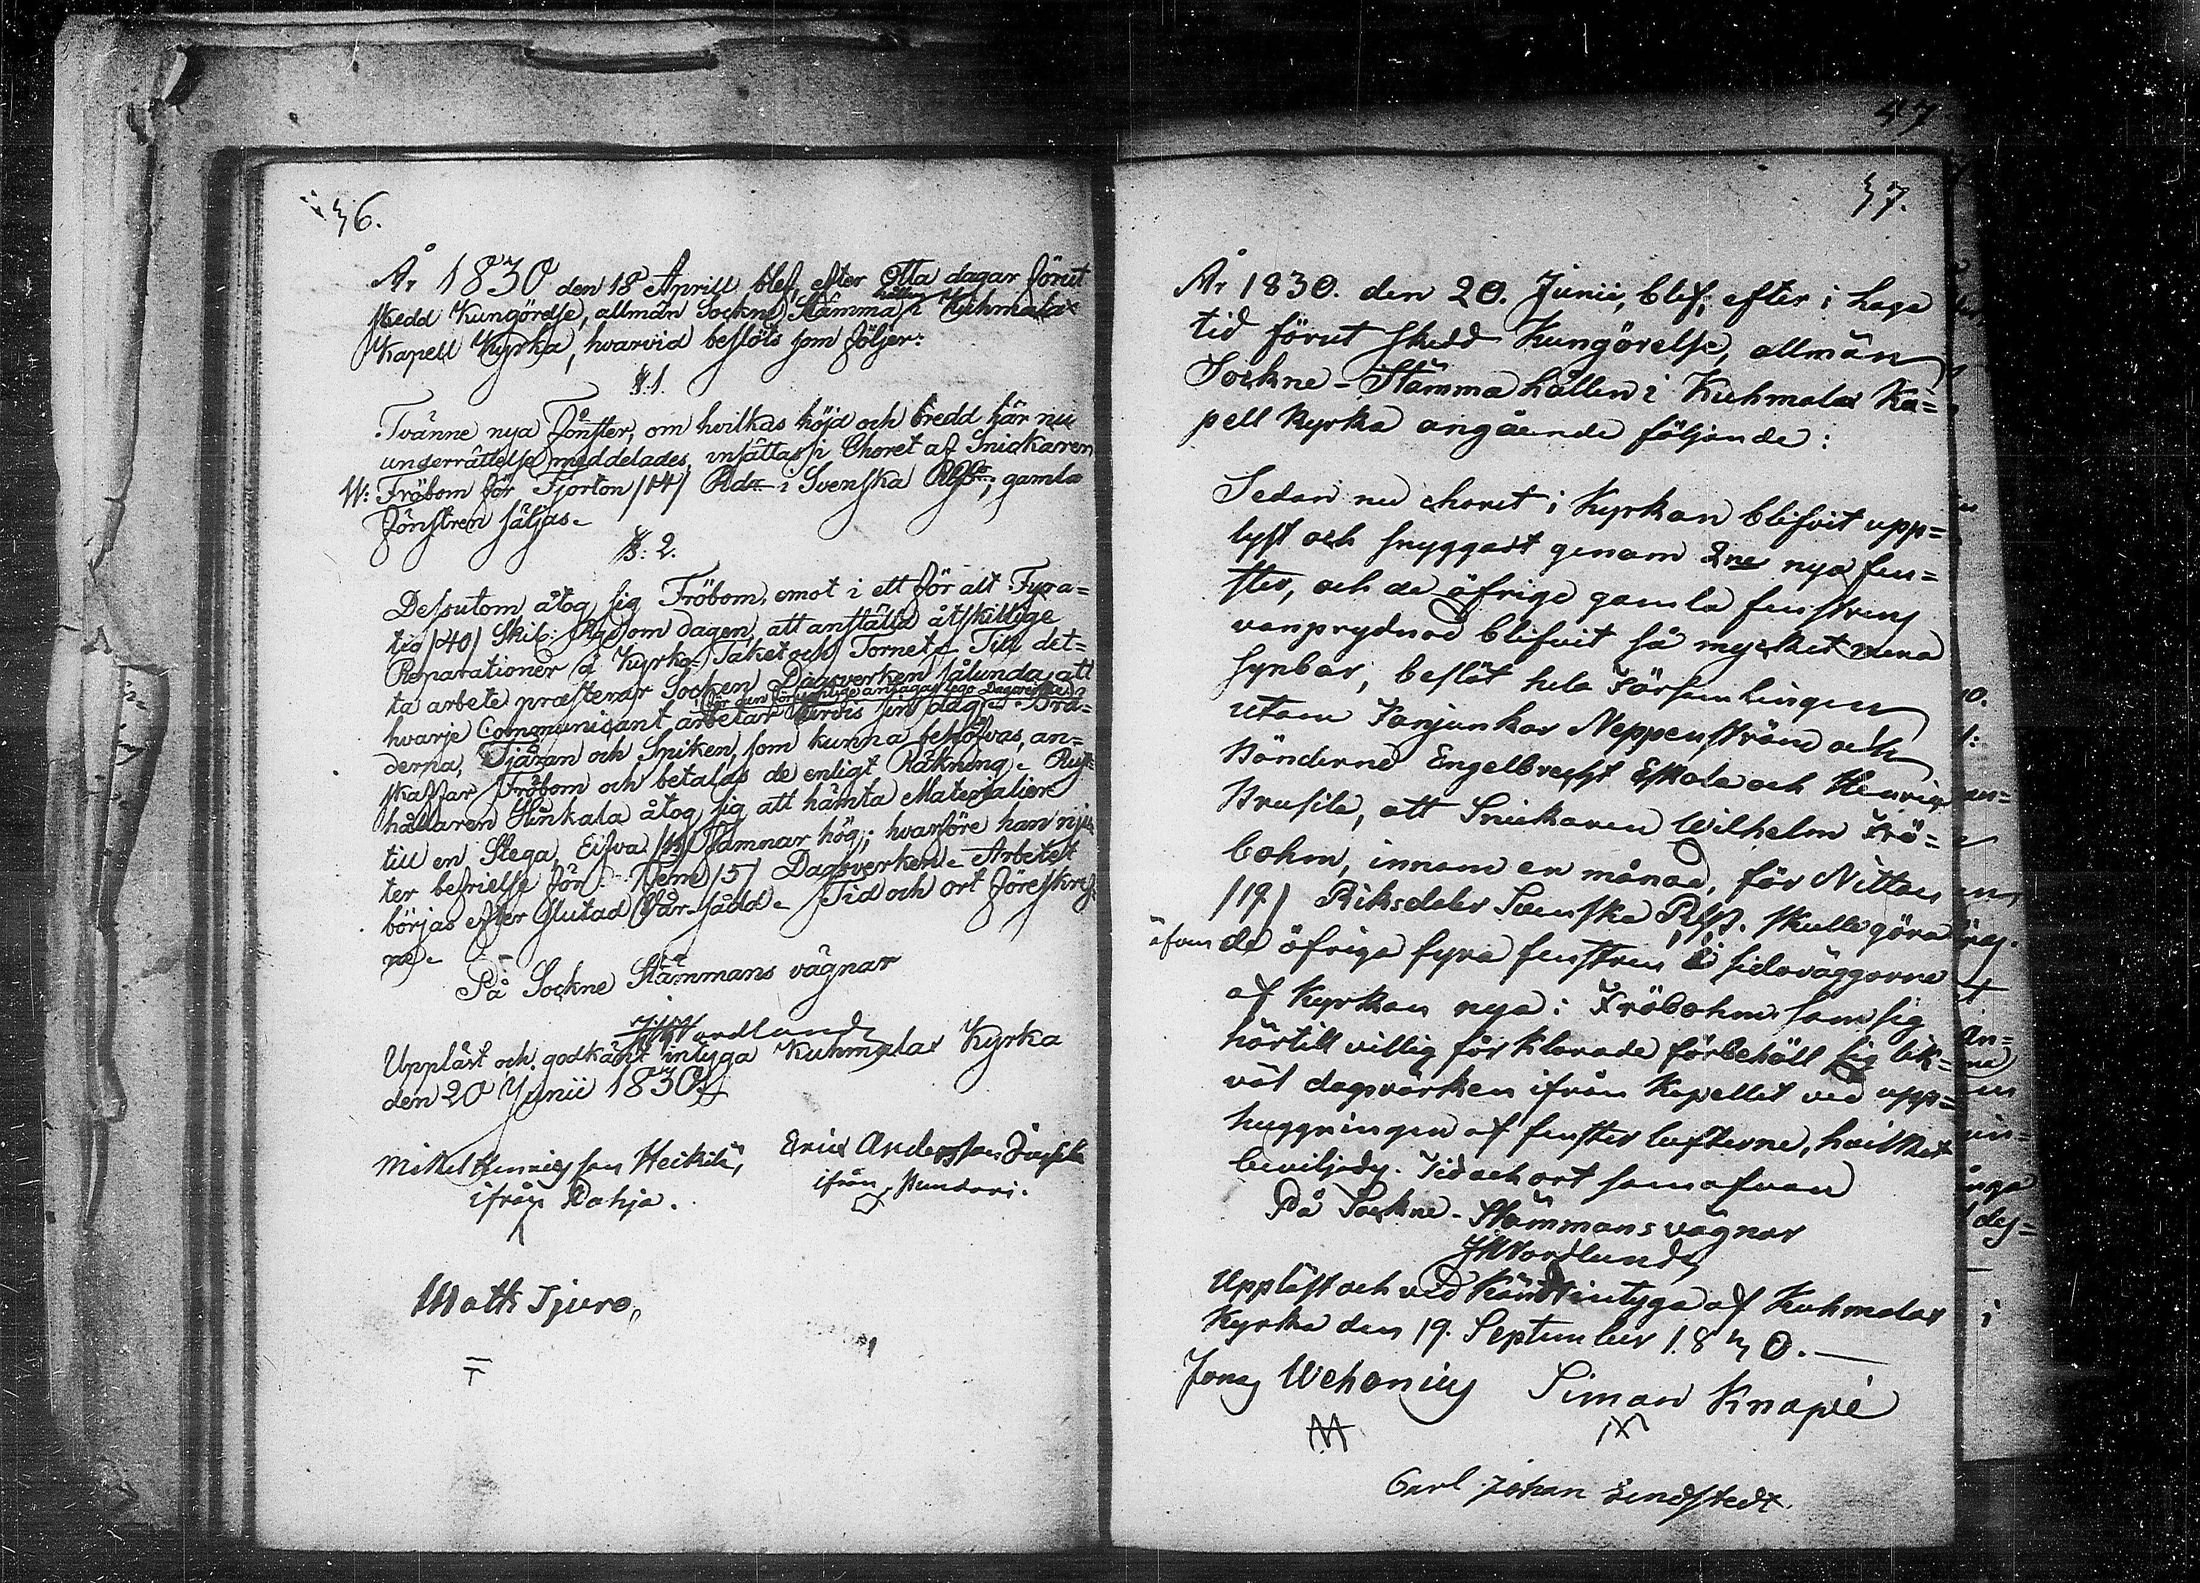 36.
År 1830 den 18 Aprill blef, efter Otta dagar förut
skedd Kungörelse, allmän Sockne Stämma hållen i Kuhmalax
Kapell Kyrka, hvarvid beslöts som följer:
§.1.
Tvänne nya Fönster, om hvilkas höjd och bredd här nu
underrättelse meddelades, insättas i Choret af Snickaren
W: Fröbom för Fjorton /14/ Rdr i Svenska Rgs; gamla
Fönstren säljas.
§: 2.
Dessutom åtog sig Fröbom, emot i ett för alt Fyra=
tio /40/ Skil: Rgs om dagen, att anställa åtskillige
Reparationer å Kyrko-Taket och Tornet. Till det=
ta arbete præsterar Socken Dagsverken sålunda, att
hvarje Communicant arbetar sin dag. Brä=
derna, Tjäran och Spiken, som kunna behöfvas, an=
skaffar Fröbom och betalas de enligt Räkning. Rust=
hållaren Hinkala åtog sig att hämta Materialier
till en Stega, Elfva /11/ Famnar hög; hvarföre han nju=
ter befrielse för Fem /5/ Dagsverken. Arbetet
börjas efter slutad Vår-sådd. Tid och ort föreskref=
ne.
På Sockne Stämmans vägnar
J W Nordlund
Uppläst och godkänt intyga Kuhmalax Kyrka
den 20 Junii 1830.
Mikel Henricsson Heickilä, Eric Andersson
ifrån Rahja. ifrån Hundari.
Matts Tjuro,
47
37.
År 1830. den 20. Junii, blef, efter i laga
tid förut skedd Kungörelse, allmän
Sockne-Stämma hållen i Kuhmalax Ka=
pell Kyrka angående följande:
Sedan nu choret i Kyrkan blifvit upp=
lyst och snyggast genom 2ne nya fen=
ster, och de öfrige gamla fenstrens
vanprydnad blifvit så mycket mera
synbar, beslöt hela Församlingen
utom Fanjunkar Neppenström och
Bönderne Engelbrecht Eskola och Henric
Brusila, att Snickaren Wilhelm Frö=
bohm, innom en månad, för Nitton
/19/ Riksdaler Svenska Rgs. skulle göra
äfven de öfriga fyra fenstren i sidoväggarne
af Kyrkan nya: Fröbohm som sig
härtill villig förklarade förbehöll sig lik=
väl dagsvärken ifrån Kapellet ved upp=
huggningen af fenster lufterne, hvilket
beviljades. Tid och ort som ofvan
På Sockne-Stämmans vägnar
J W Nordlund
Uppläst och vid känt intyga af Kuhmalax
Kyrka den 19. September 1830.
Jonas Wehanius Simon Knapei
Carl Johan Lindstedt.